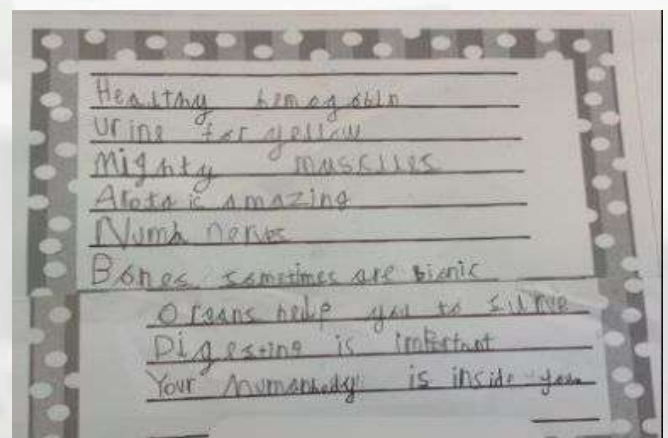 Healthy hemogobin
Urine for yellow
Mighty muscules
Aorta is amazing
Numb nerves
Bones sometimes are bionic
Organs help you to
Digesting is important
Your humanbody is inside you